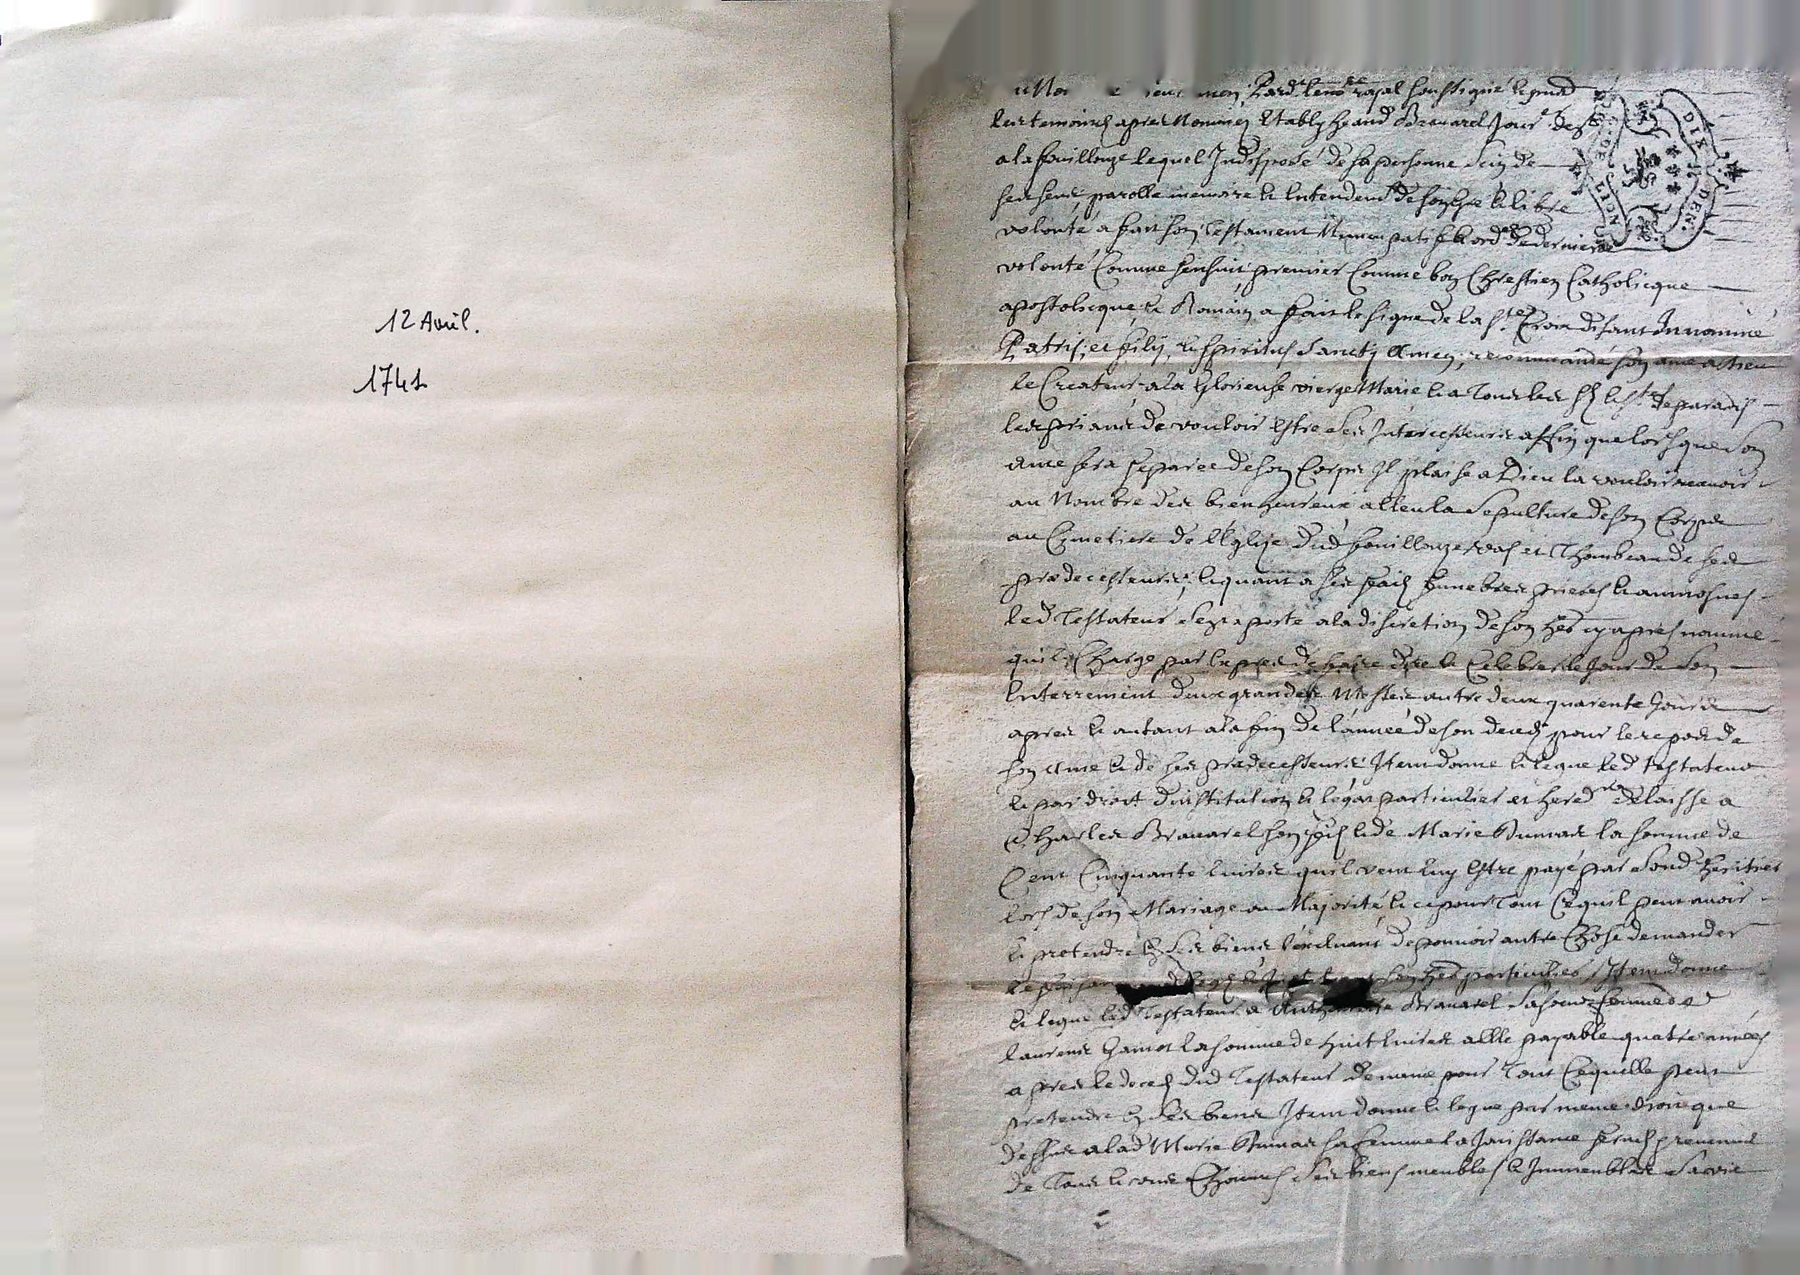 12 Avril.
1741
royal soussigné
les temoins apres nommez Estably Jean Bravard
a la fouillouze lequel Indisposé de sa personne sain de
ses sens parolle memoire et Entendem de son gré et libre
volonté a fait son Testament Nuncupatif et ord de derniere
volonté Comme sensuit premier Comme bon Chrestien Catholicque
apostolicque et Romain a fait le signe de la ste Croix disant In nomine
Patris, et filij, et spiritus Sancti Amen, recommandé son ame a Dieu
le Createur, a la glorieuse vierge Marie et a Tous les sts et stes de paradis
les priant de vouloir Estre ses Intercesseurs affin que lorsque son
ame sera separée de son Corps Il plaise a Dieu la vouloir recevoir
au Nombre des bienheureux alleu la sepulture de son Corps
au Cymetiere de l'Eglise dud fouillouze vas et Thombeau de ses
predecesseurs, et quant a ses frais funebres prieres et aumosnes
led Testateur sen raporte a la discretion de son her cy apres nommé
quil Charge par Expres de faire dire et Celebrer le Jour de son
Enterrement deux grandes Messes autre deux quarente Jours
apres et autant a la fin de l'année de son deces pour le repos de
son ame et de ses predecesseurs Item donne et legue led testateur
et par droit d'institution et legat particulier et hered delaisse a
Charles Bravard son fils et de Marie Dumas la somme de
Cent Cinquante livres quil veut luy Estre payé par sond heritier
lors de son Mariage ou Majorité et ce pour Tout Ce quil peut avoir
et pretendre En ses biens l'exluant de pouvoir autre Chose demander
son her particulier / Item donne
et legue led testateur a Bravard sa soeur femme de
laurens la somme de huit livres a Elle payable quatre années
apres le deces dud Testateur de meme pour Tout Ce quelle peut
pretendre En ses biens Item donne et legue par meme droit que
dessus a lad Marie Dumas sa femme la Jouissance
de Tous et Ses biens meubles et Immeubles sa vie
DIX DEN.